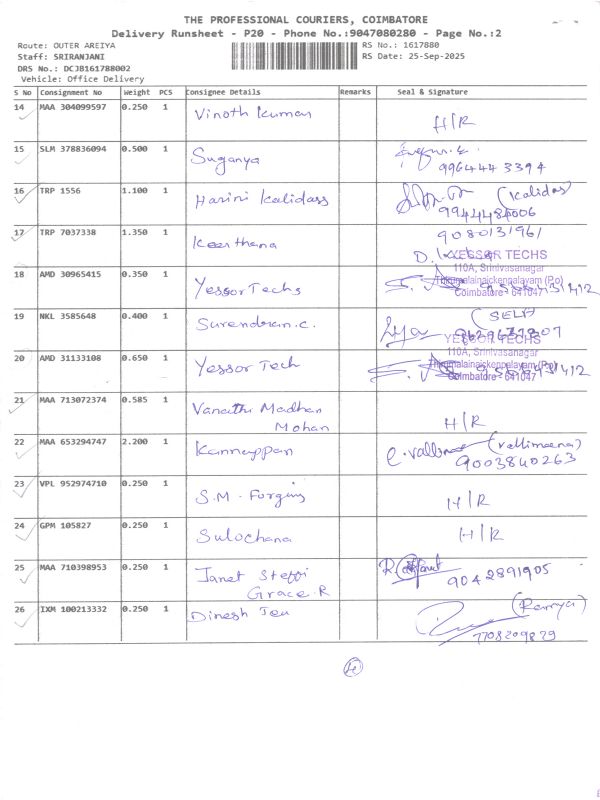 THE PROFESSIONAL COURIERS, COIMBATORE
Delivery Runsheet - P20 - Phone No.:9047080280 - Page No.:2
Route: OUTER AREIYA
RS No.: 1617880
Staff: SRIRANJANI
RS Date: 25-Sep-2025
DRS No.: DCJB161788002
Vehicle: Office Delivery
S No Consignment No Weight PCS Consignee Details Remarks Seal & Signature
14 MAA 304099597 0.250 1 Vinoth Kumar H/R
15 SLM 378836094 0.500 1 Suganya
9964443394
16 TRP 1556 1.100 1 Harini Kalidass (Kalidas)
9944484006
17 TRP 7037338 1.350 1 Keerthana 9080131961
18 AMD 30965415 0.350 1 Yessor Techs
YESSOR TECHS
110A, Srinivasanagar
Thirumalainaickenpalayam (P.o)
Coimbatore - 641047
19 NKL 3585648 0.400 1 Surendran.c. (SELF)
20 AMD 31133108 0.650 1 Yessor Tech
YESSOR TECHS
110A, Srinivasanagar
Thirumalainaickenpalayam (P.o)
Coimbatore - 641047
21 MAA 713072374 0.585 1 Vanathi Madhan
Mohan H/R
22 MAA 653294747 2.200 1 Kannappan (Vallimeena)
9003840263
23 VPL 952974710 0.250 1 S.M. Forging H/R
24 GPM 105827 0.250 1 Sulochana H/R
25 MAA 710398953 0.250 1 Janet Steffi
Grace R 9042891905
26 IXM 100213332 0.250 1 Dinesh (Ramya)
7708209829